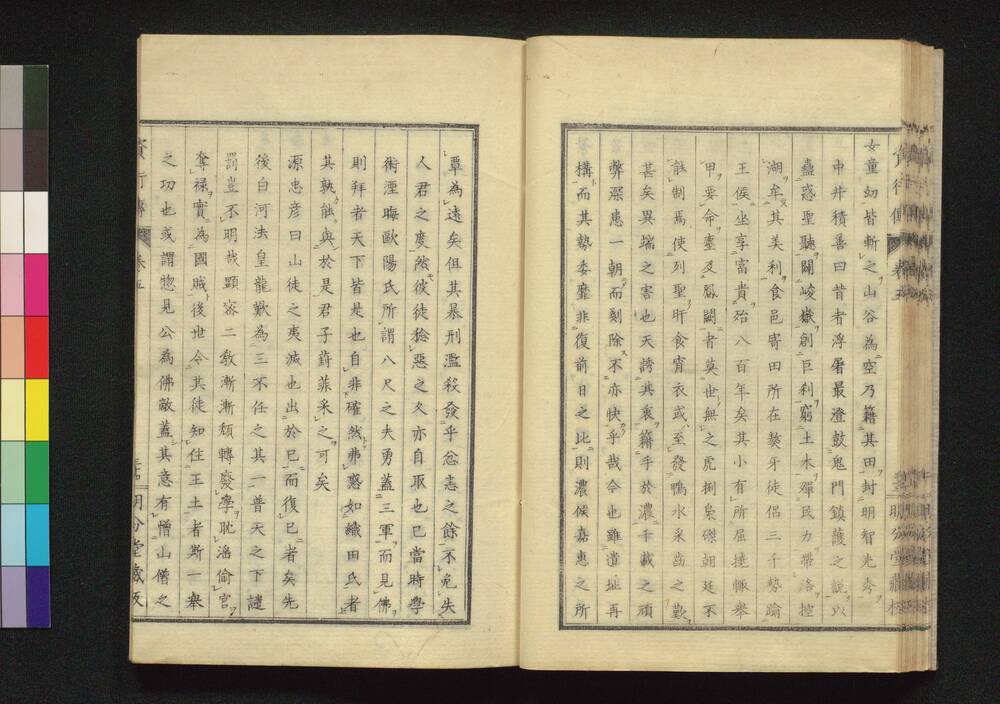 女童幼皆斬之山谷為空乃籍其田封明智光秀
中井積善曰昔者浮屠最澄鼓鬼門鎮護之說以
蠱惑聖聽闢峻嶽創巨利窮土木殫民力帶洛控
湖牟其美利食邑寄田所在獒牙徒侶三千勢踰
王侯坐享富貴殆八百年矣其小有所屈撓輙舉
甲要命臺及鳳闕者莫世無之虎捌梟磔朝廷不
能制焉使列聖旰食宵衣或至發鴨水采齒之歎
甚矣異端之害也天誘其衷籍手於濃千載之頑
弊深患一朝而剗除不亦快乎哉今也雖遺址再
構而其勢委靡非復前日之比則濃侯嘉惠之所
覃為遠矣但其暴刑濫殺發乎忿恚之餘不免失
人君之度然彼徒稔惡之久亦自取也已當時學
術湮晦歐陽氏所謂八尺之夫勇蓋三軍而見佛
則拜者天下皆是也自非確然弗惑如織田氏者
其孰能與於是君子葑菲采之可矣
源忠彥曰山徒之夷滅也出於已而復已者矣先
後白河法皇龍歎為三不任之其一普天之下譴
罰豈不明哉顯密二教漸漸頹轉廢學耽滛偷官
奪祿實為國賊後世令其徒知住王土者斯一舉
之功也或謂惣見公為佛敵蓋其意有憎山僧之
卷五
明分堂藏板